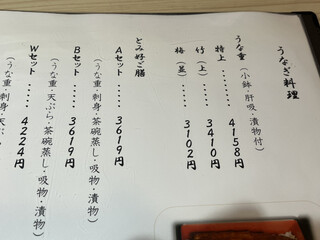 うなぎ料理
うな重(小鉢・肝吸・漬物付)
特上・・・・・・4158円
竹(上)・・・・・3410円
梅(並)・・・・・3102円
とみ好ご膳
Aセット・・・・・3619円
(うな重・刺身・茶碗蒸し・吸物・漬物)
Bセット・・・・・3619円
(うな重・天ぷら・茶碗蒸し・吸物・漬物)
Wセット・・・・・4224円
(うな重・刺身・天ぷ